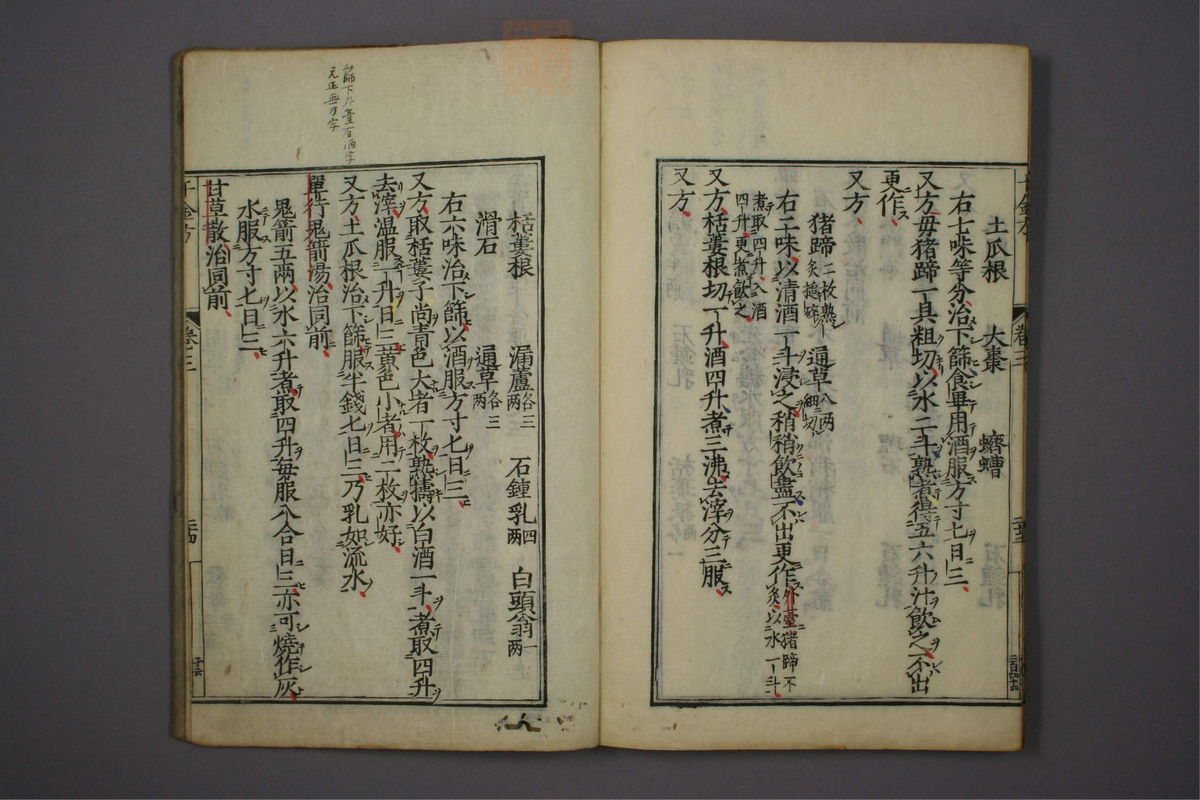 土瓜根 大棗 蠐螬
右七味等分治下篩食畢用酒服方寸匕日三
又方毋猪蹄一具粗切以水二斗熟煮得五六升汁飲之不出
更作
又方
猪蹄二枚熟炙搥碎 通草八两細切
右二味以清酒一斗浸之稍稍飲盡不出更作外臺猪蹄不炙以水一斗
煮取四升入酒四升更煮飲之
又方栝蔞根切一升酒四升煮三沸去滓分三服
又方
千金方 卷三
任篩下外臺有酒字
元正無方字
栝蔞根 漏蘆各三两 石鍾乳四两 白頭翁一两
滑石 通草各三两
右六味治下篩以酒服方寸匕日三
又方取栝蔞子尚青色大者一枚熟擣以白酒一斗煮取四升
去滓温服一升日三黄色小者用二枚亦好
又方土瓜根治下篩服半錢匕日三乃乳如流水
單行鬼箭湯治同前
鬼箭五兩以水六升煮取四升每服八合日三亦可燒作灰
水服方寸匕日三
甘草散治同前
千金方 卷三